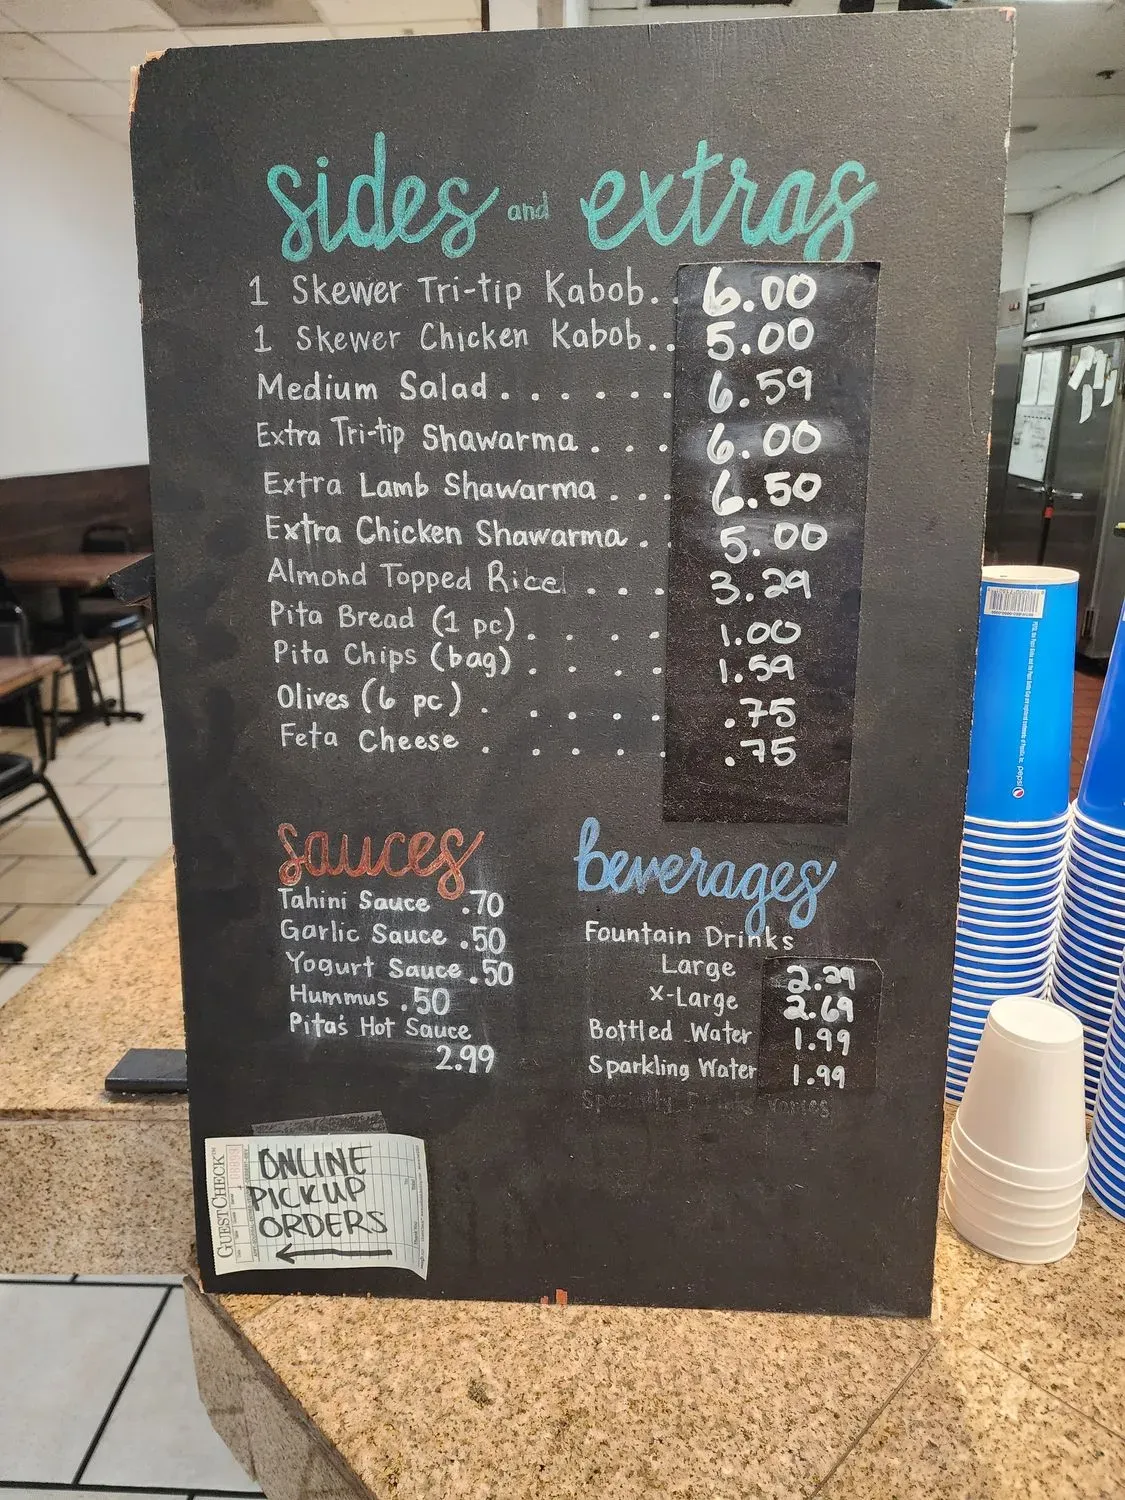 sides and extras
1 Skewer Tri-tip Kabob.. 6.00
1 Skewer Chicken Kabob.. 5.00
Medium Salad...... 6.59
Extra Tri-tip Shawarma... 6.00
Extra Lamb Shawarma... 6.50
Extra Chicken Shawarma.. 5.00
Almond Topped Rice... 3.29
Pita Bread (1 pc)..... 1.00
Pita Chips (bag)..... 1.59
Olives (6 pc)..... .75
Feta Cheese..... .75
sauces
Tahini Sauce .70
Garlic Sauce .50
Yogurt Sauce .50
Hummus .50
Pita's Hot Sauce
2.99
beverages
Fountain Drinks
Large 2.29
X-Large 2.69
Bottled Water 1.99
Sparkling Water 1.99
Varies
GUEST CHECK
ONLINE
PICKUP
ORDERS
pepsi